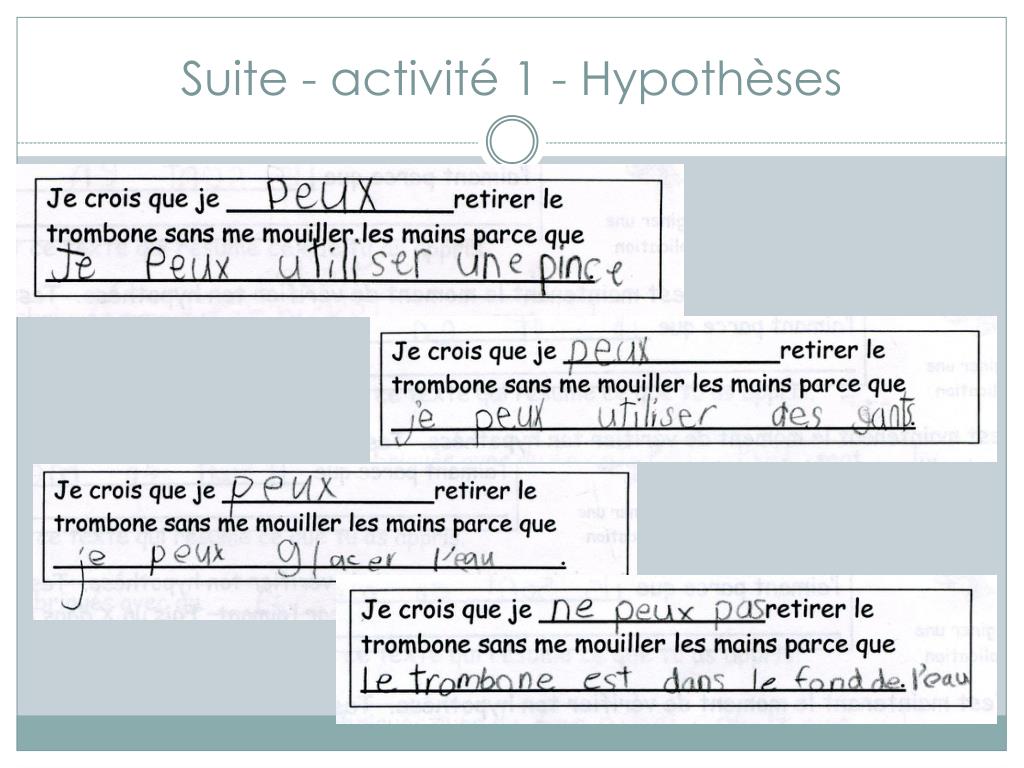 Suite - activité 1 - Hypothèses
Je crois que je peux retirer le
trombone sans me mouiller les mains parce que
Je peux utiliser une pince
Je crois que je peux retirer le
trombone sans me mouiller les mains parce que
je peux utiliser des gants.
Je crois que je peux retirer le
trombone sans me mouiller les mains parce que
je peux glacer l'eau.
Je crois que je ne peux pas retirer le
trombone sans me mouiller les mains parce que
le trombone est dans le fond de l'eau